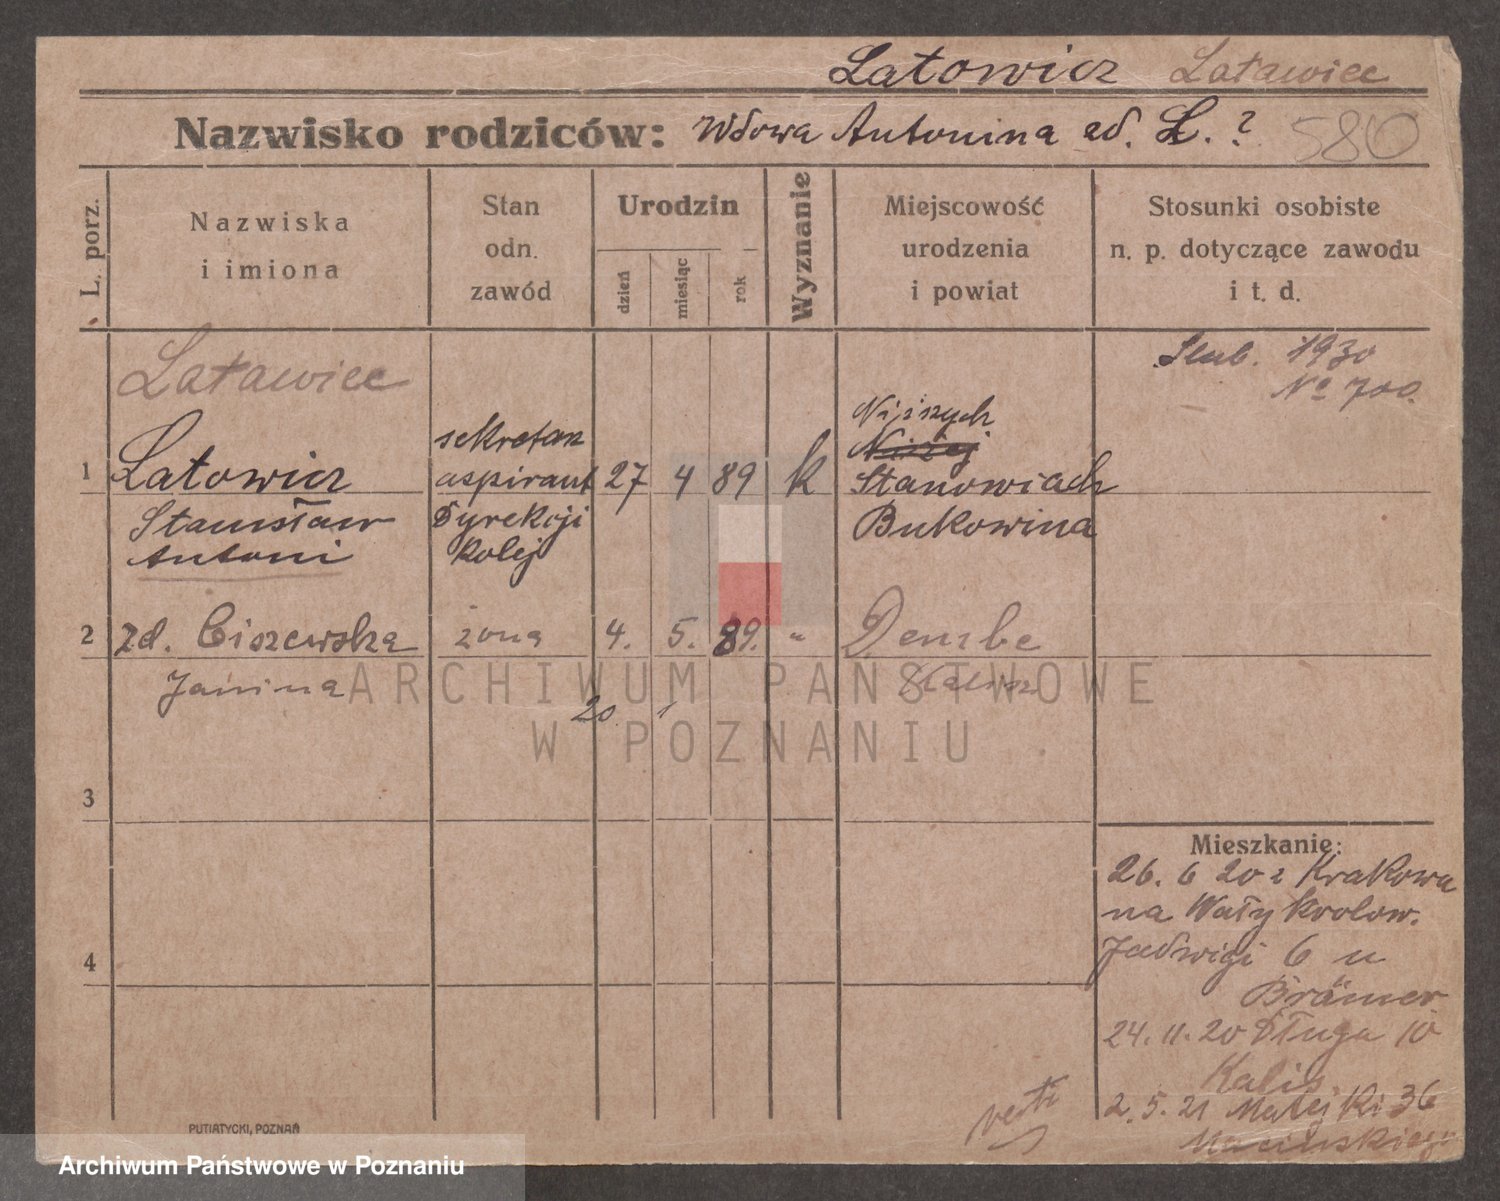 Latowicz Latawiec
Nazwisko rodziców: Wdowa Antonina ed. L. ?
580
L. porz.
Nazwiska
i imiona
Stan
odn.
zawód
Urodzin
dzień
miesiąc
rok
Wyznanie
Miejscowość
urodzenia
i powiat
Stosunki osobiste
n. p. dotyczące zawodu
i t. d.
Ślub. 1930
No 700.
Latawiec
1
Latowicz
Stanisław
Antoni
sekretarz
aspirant
Dyrekcji
kolej
27 4 89 k
Niższych
Niżej
Stanowiach
Bukowina
2
zd. Ciszewska
Janina
żona
4. 5. 89. "
20. 1
Dembe
Kalisz
3
4
Mieszkanie:
26. 6 20 z Krakowa
na Wały Krolow.
Jadwigi 6 u
Brämer
24. 11. 20 Długa 10
Kalis
2. 5. 21 Matejki 36
verti
PUTIATYCKI, POZNAŃ
ARCHIWUM PAŃSTWOWE
W POZNANIU
Archiwum Państwowe w Poznaniu